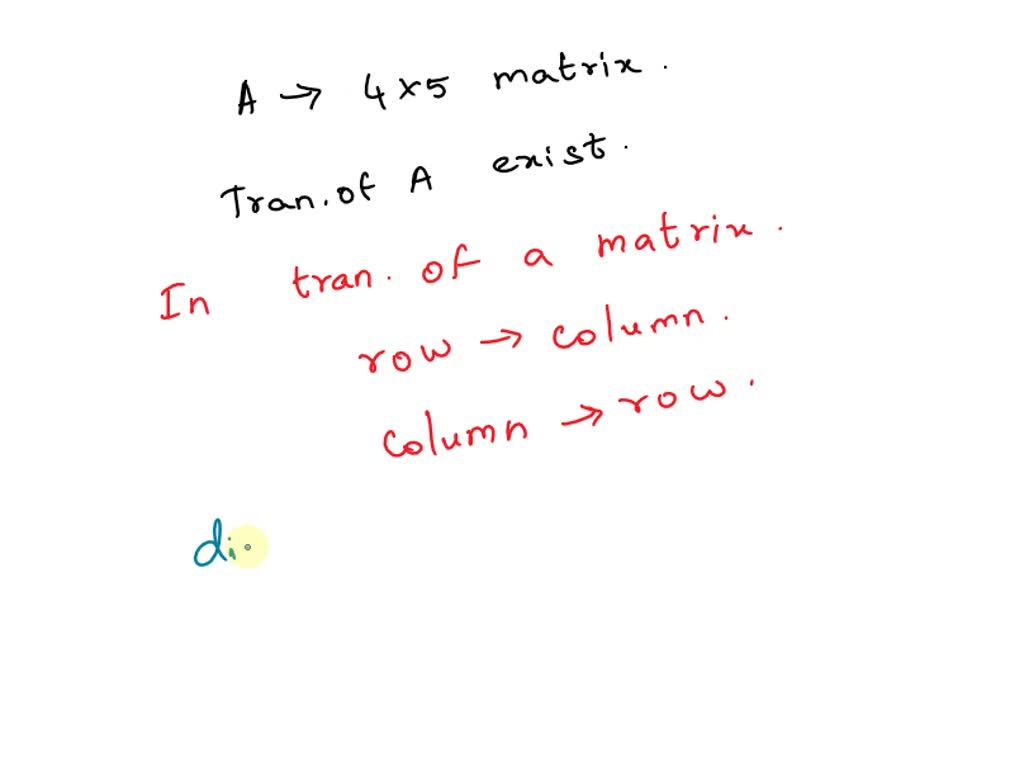 A → 4×5 matrix.
Tran. of A exist.
In tran. of a matrix.
row → column.
column → row.
di